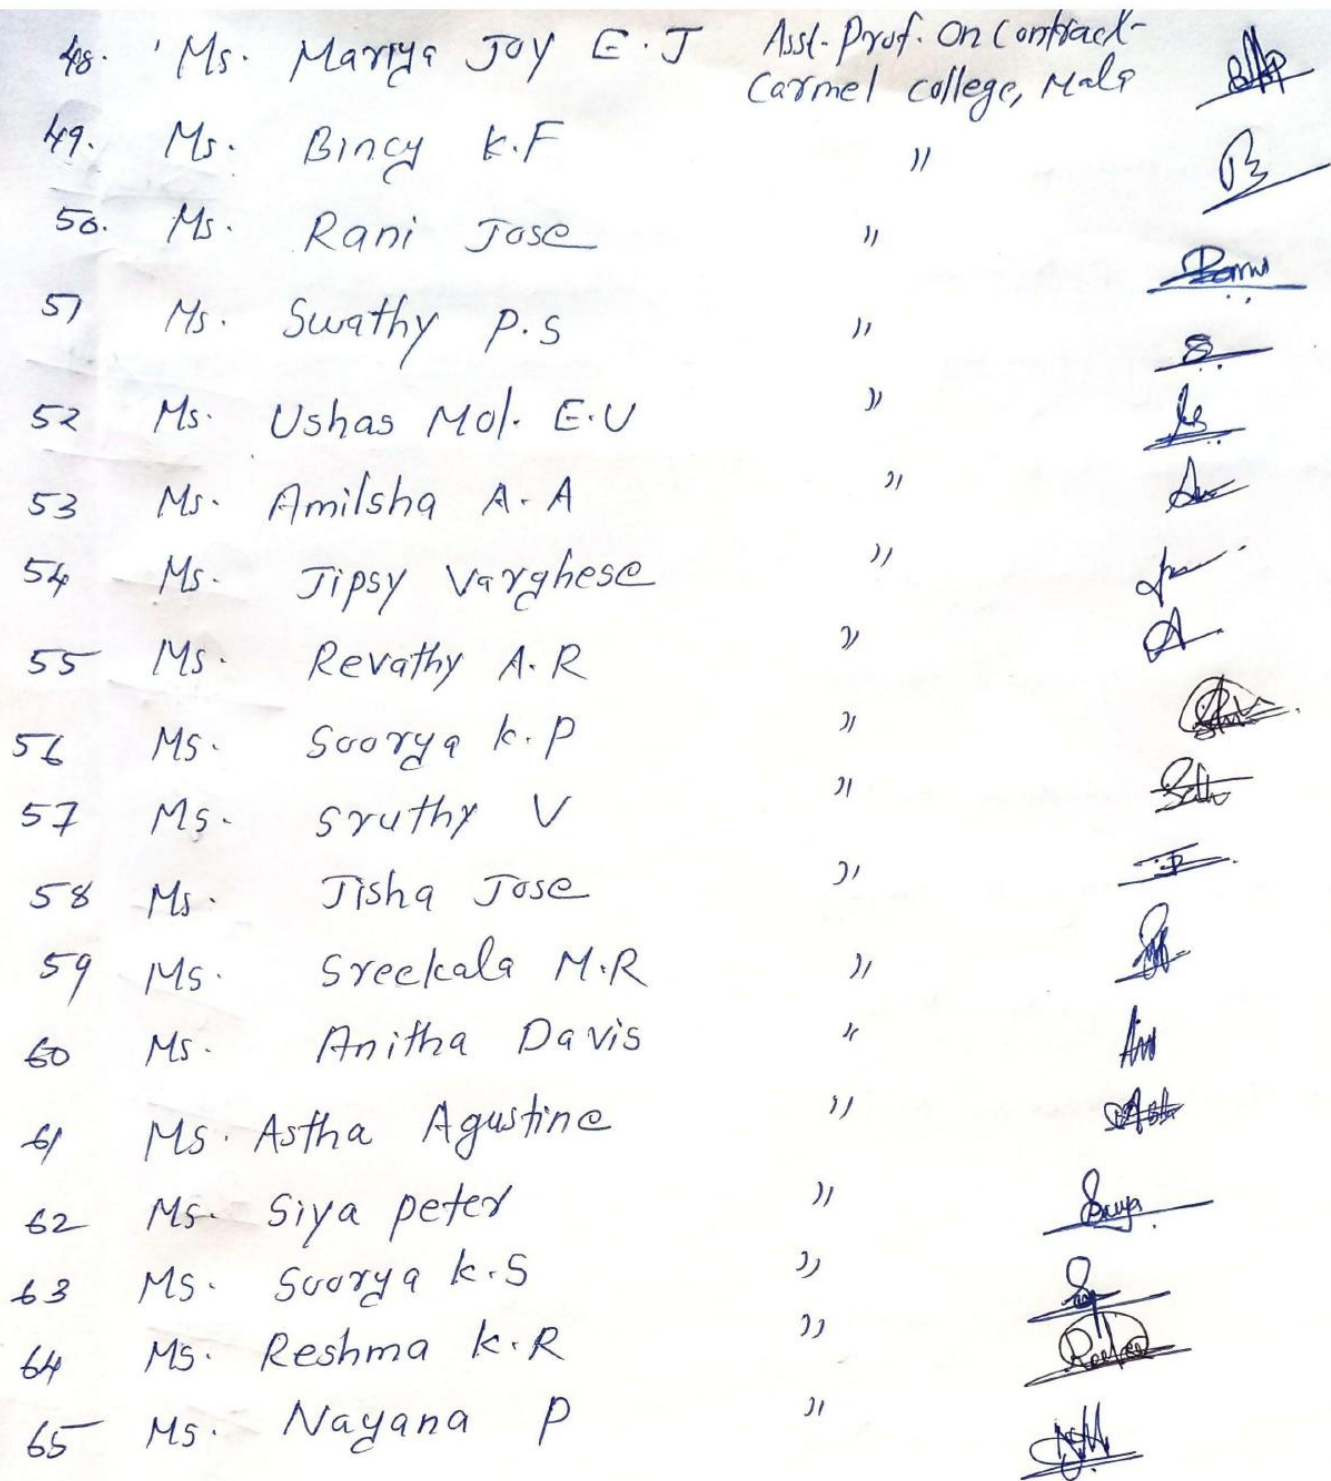 48. Ms. Mariya Joy E.J Asst. Prof. On Contract
Carmel college, Mala
49. Ms. Bincy K.F "
50. Ms. Rani Jose "
51 Ms. Swathy P.S "
52 Ms. Ushas Mol. E.U "
53 Ms. Amilsha A.A "
54 Ms. Jipsy Varghese "
55 Ms. Revathy A.R "
56 Ms. Soorya K.P "
57 Ms. Sruthy V "
58 Ms. Jisha Jose "
59 Ms. Sreekala M.R "
60 Ms. Anitha Davis "
61 Ms. Astha Agustine "
62 Ms. Siya peter "
63 Ms. Soorya K.S "
64 Ms. Reshma K.R "
65 Ms. Nayana P "